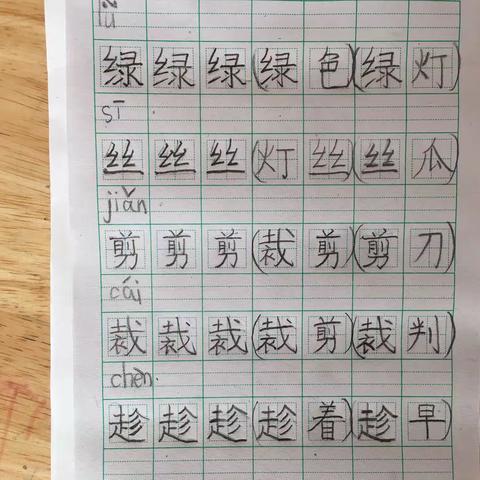 lǜ
绿绿绿(绿色)(绿灯)
sī
丝丝丝(灯丝)(丝瓜)
jiǎn
剪剪剪(裁剪)(剪刀)
cái
裁裁裁(裁剪)(裁判)
chèn
趁趁趁(趁着)(趁早)